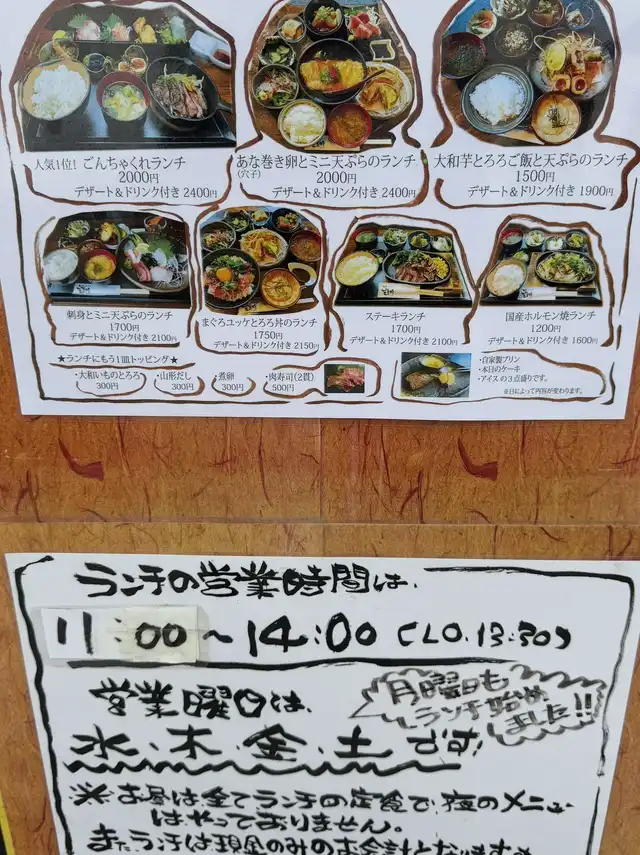 人気1位! ごんちゃくれランチ
2000円
デザート&ドリンク付き 2400円
あな巻き卵とミニ天ぷらのランチ
(穴子)
2000円
デザート&ドリンク付き 2400円
大和芋とろろご飯と天ぷらのランチ
1500円
デザート&ドリンク付き 1900円
刺身とミニ天ぷらのランチ
1700円
デザート&ドリンク付き 2100円
まぐろユッケとろろ丼のランチ
1750円
デザート&ドリンク付き 2150円
ステーキランチ
1700円
デザート&ドリンク付き 2100円
国産ホルモン焼ランチ
1200円
デザート&ドリンク付き 1600円
★ランチにもう1皿トッピング★
・大和いものとろろ
300円
・山形だし
300円
・煮卵
300円
・肉寿司(2貫)
500円
・自家製プリン
・本日のケーキ
・アイスの3点盛りです。
※日によって内容が変わります。
ランチの営業時間は、
11:00~14:00 (LO.13:30)
営業曜日は、
月曜日も
ランチ始め
ました!!
水・木・金・土です!
※お昼は全てランチの定食で、夜のメニュー
はやっておりません。
またランチは現金のみのお会計となります